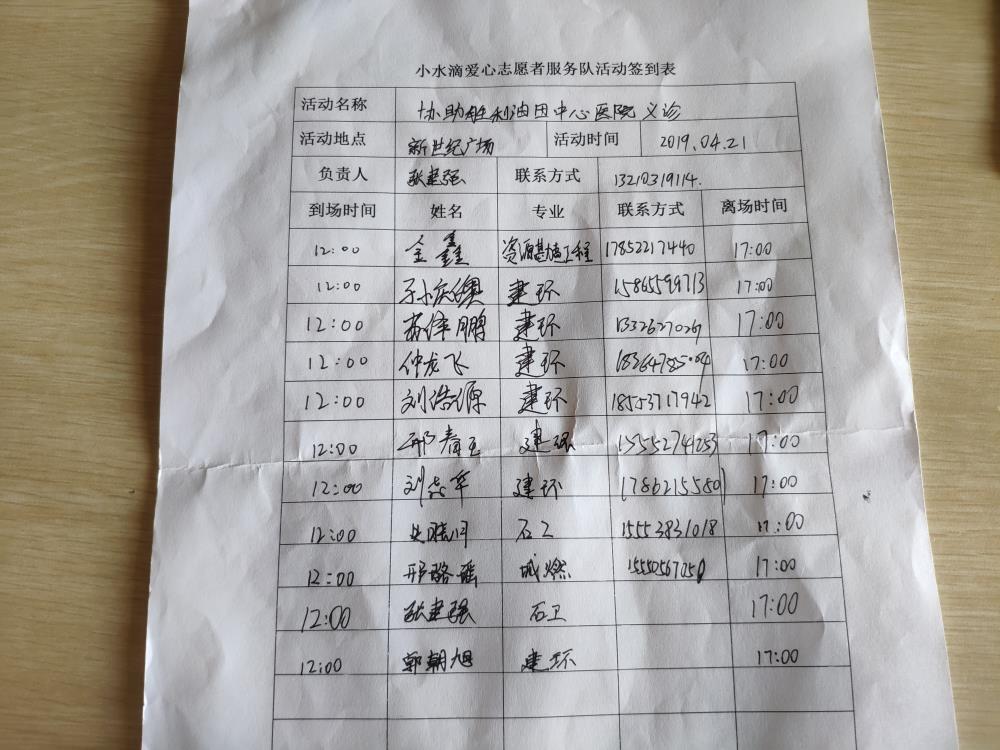 小水滴爱心志愿者服务队活动签到表
活动名称 协助胜利油田中心医院义诊
活动地点 新世纪广场 活动时间 2019.04.21
负责人 张建强 联系方式 13210319114.
到场时间 姓名 专业 联系方式 离场时间
12:00 金鑫 资源勘查工程 17852217440 17:00
12:00 建环 15865599713 17:00
12:00 建环 17:00
12:00 仲龙飞 建环 17:00
12:00 刘浩源 建环 18553717942 17:00
12:00 建环 17:00
12:00 建环 17:00
12:00 石工 15553831018 17:00
12:00 邢璐瑶 城燃 17:00
12:00 张建强 石卫 17:00
12:00 郭朝旭 建环 17:00